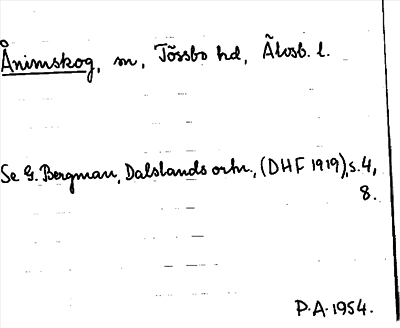 Ånimskog, m, Tössbo hd, Älvsb. l.
Se G. Bergman, Dalslands ortn., (DHF 1919), s. 4,
8.
P.A. 1954.